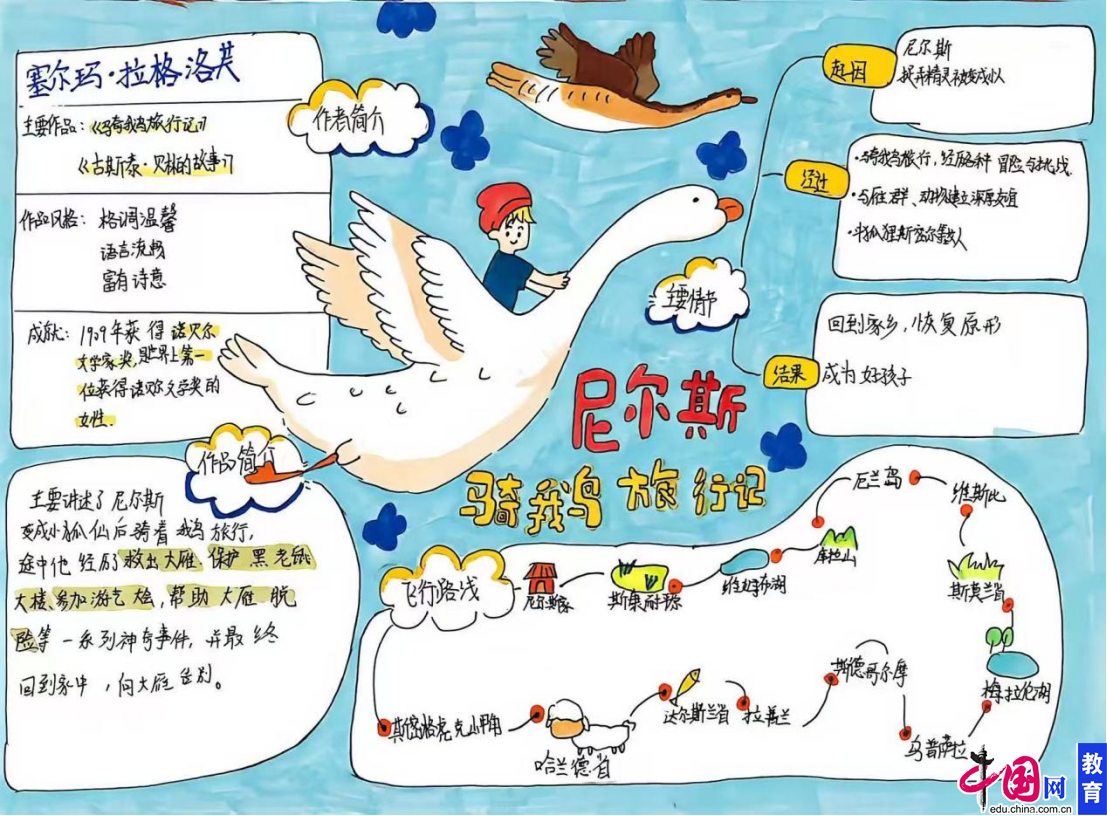 塞尔玛·拉格洛芙
主要作品：《骑鹅旅行记》
《古斯泰·贝林的故事》
作品风格：格调温馨
语言流畅
富有诗意
成就：1909年获得诺贝尔
文学家奖，是世界上第一
位获得诺贝尔文学奖的
女性.
作者简介
作品简介
主要讲述了尼尔斯
变成小狐仙后骑着鹅旅行，
途中他经历救出大雁、保护黑老鼠
大楼、参加游艺会，帮助大雁脱
险等一系列神奇事件，并最终
回到家中，向大雁告别。
尼尔斯
骑鹅鸟旅行记
主要情节
起因
尼尔斯
捉弄精灵被变成小人
经过
·骑鹅旅行，经历各种冒险与挑战.
·与雁群、动物建立深厚友谊
·斗狐狸斯密尔等敌人
结果
回到家乡，恢复原形
成为好孩子
飞行路线
尼尔斯家
厄兰岛
维斯比
斯莫兰省
梅拉伦湖
乌普萨拉
斯德哥尔摩
拉普兰
达尔斯兰省
哈兰德省
中国网
edu.china.com.cn
教育